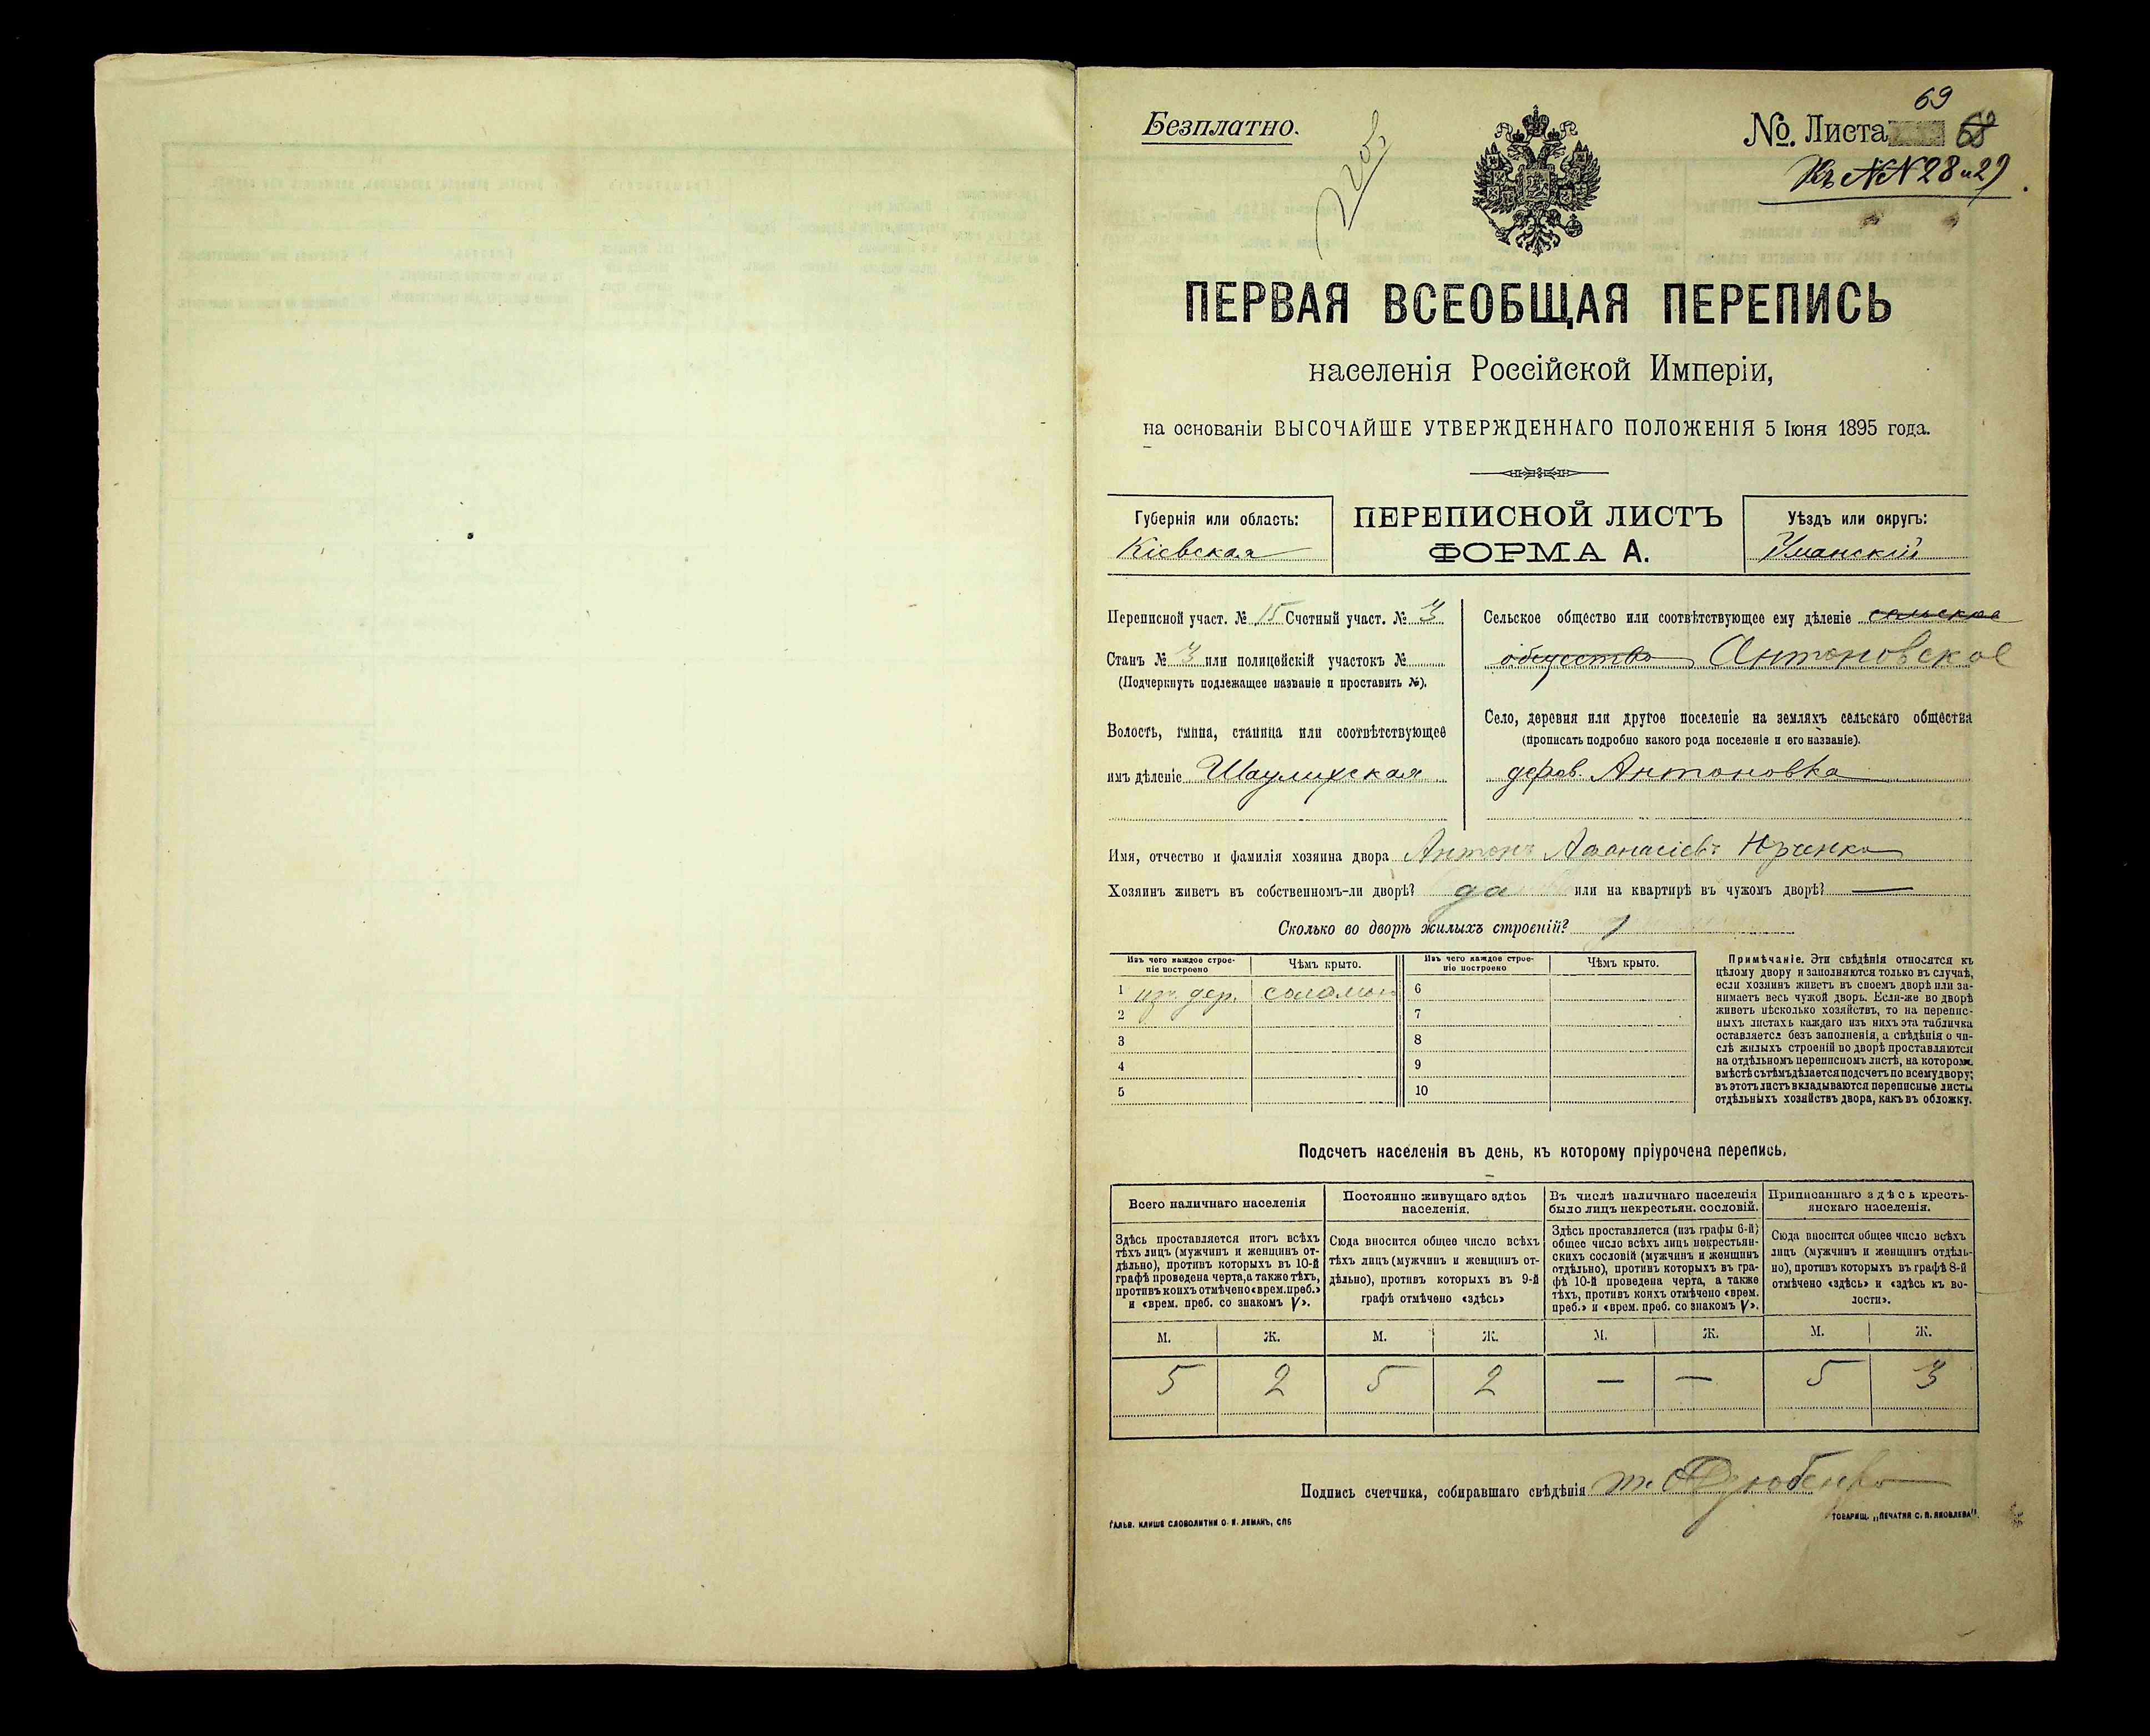 69
Безплатно.
№. Листа 68
Къ №№ 28 и 29
ПЕРВАЯ ВСЕОБЩАЯ ПЕРЕПИСЬ
населенія Россійской Имперіи,
на основаніи ВЫСОЧАЙШЕ УТВЕРЖДЕННАГО ПОЛОЖЕНІЯ 5 Іюня 1895 года.
Губернія или область:
Кіевская
ПЕРЕПИСНОЙ ЛИСТЪ
ФОРМА А.
Уѣздъ или округъ:
Уманскій
Переписной участ. № 15 Счетный участ. № 3
Станъ № 3 или полицейскій участокъ №
(Подчеркнуть подлежащее названіе и проставить №).
Волость, гмина, станица или соотвѣтствующее
имъ дѣленіе Шаулихская
Сельское общество или соотвѣтствующее ему дѣленіе сельское
общество Антоновское
Село, деревня или другое поселеніе на земляхъ сельскаго общества
(прописать подробно какого рода поселеніе и его названіе).
дерев. Антоновка
Имя, отчество и фамилія хозяина двора Антонъ Афанасіевъ
Хозяинъ живетъ въ собственномъ-ли дворѣ? да или на квартирѣ въ чужомъ дворѣ? —
Сколько во дворѣ жилыхъ строеній? 1
Изъ чего каждое строе-
ніе построено
Чѣмъ крыто.
Изъ чего каждое строе-
ніе построено
Чѣмъ крыто.
1 изъ дер. соломою
6
2
7
3
8
4
9
5
10
Примѣчаніе. Эти свѣдѣнія относятся къ
цѣлому двору и заполняются только въ случаѣ,
если хозяинъ живетъ въ своемъ дворѣ или за-
нимаетъ весь чужой дворъ. Если-же во дворѣ
живетъ нѣсколько хозяйствъ, то на перепис-
ныхъ листахъ каждаго изъ нихъ эта табличка
оставляется безъ заполненія, а свѣдѣнія о чи-
слѣ жилыхъ строеній во дворѣ проставляются
на отдѣльномъ переписномъ листѣ, на которомъ
вмѣстѣ съ тѣмъ дѣлается подсчетъ по всему двору;
въ этотъ листъ вкладываются переписные листы
отдѣльныхъ хозяйствъ двора, какъ въ обложку.
Подсчетъ населенія въ день, къ которому пріурочена перепись.
Всего наличнаго населенія
Здѣсь проставляется итогъ всѣхъ
тѣхъ лицъ (мужчинъ и женщинъ от-
дѣльно), противъ которыхъ въ 10-й
графѣ проведена черта, а также тѣхъ,
противъ коихъ отмѣчено «врем. преб.»
и «врем. преб. со знакомъ V».
Постоянно живущаго здѣсь
населенія.
Сюда вносится общее число всѣхъ
тѣхъ лицъ (мужчинъ и женщинъ от-
дѣльно), противъ которыхъ въ 9-й
графѣ отмѣчено «здѣсь»
Въ числѣ наличнаго населенія
было лицъ некрестьян. сословій.
Здѣсь проставляется (изъ графы 6-й)
общее число всѣхъ лицъ некрестьян-
скихъ сословій (мужчинъ и женщинъ
отдѣльно), противъ которыхъ въ гра-
фѣ 10-й проведена черта, а также
тѣхъ, противъ коихъ отмѣчено «врем.
преб.» и «врем. преб. со знакомъ V».
Приписаннаго здѣсь кресть-
янскаго населенія.
Сюда вносится общее число всѣхъ
лицъ (мужчинъ и женщинъ отдѣль-
но), противъ которыхъ въ графѣ 8-й
отмѣчено «здѣсь» и «здѣсь къ во-
лости».
М. Ж. М. Ж. М. Ж. М. Ж.
5 2 5 2 — — 5 3
Подпись счетчика, собиравшаго свѣдѣнія
ГАЛЬВ. КЛИШЕ СЛОВОЛИТНИ О. И. ЛЕМАНЪ, СПБ
ТОВАРИЩ. „ПЕЧАТНЯ С. П. ЯКОВЛЕВА".